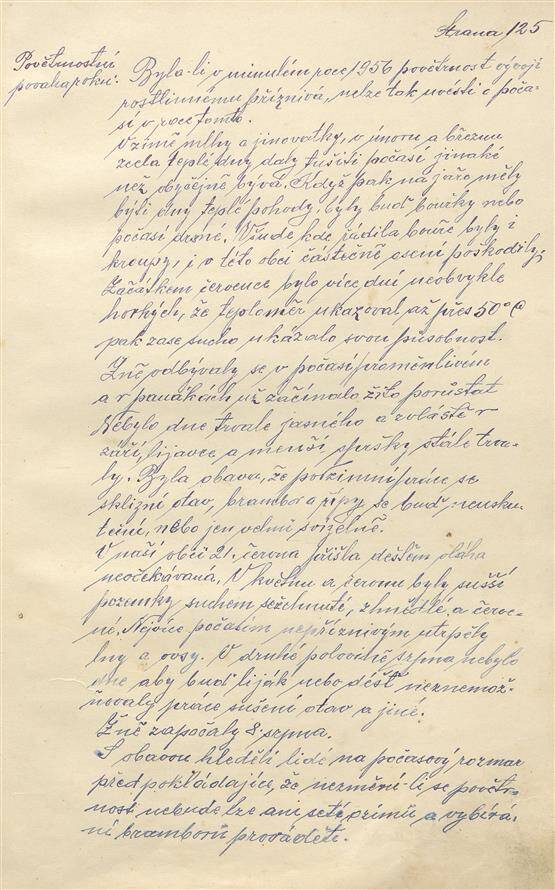 Strana 125
Povětrnostní
povaha roku:
Byla-li v minulém roce 1956 povětrnost vývoji
rostlinnému příznivá, nelze tak uvésti o poča-
sí v roce tomto.
V zimě mlhy a jinovatky, v únoru a březnu
zcela teplé dny daly tušiti počasí jinaké
než obyčejně bývá. Když pak na jaře měly
býti dny teplé pohody, byly buď bouřky nebo
počasí drsné. Všude kde řádila bouře byly i
kroupy, i v této obci částečně osení poškodily.
Začátkem července bylo více dní neobvykle
horkých, že teploměr ukazoval až přes 50° C
pak zase sucho ukázalo svou působnost.
Žně odbývaly se v počasí proměnlivém
a v panákách už začínalo žito porůstat
Nebylo dne trvale jasného a zvláště v
září, lijavce a menší spršky stále trva-
ly. Byla obava, že podzimní práce se
sklizní otav, brambor a řípy se buď neusku-
teční, nebo jen velmi svízelně.
V naší obci 21. června přišla deštěm vláha
neočekávaná. V květnu a červnu byly sušší
pozemky suchem sežehnuté, zhnědlé, a červe-
né. Nejvíce počasím nepříznivým utrpěly
lny a ovsy. V druhé polovině srpna nebylo
dne aby buď liják nebo déšť neznemož-
ňovaly práce sušení otav a jiné.
Žně započaly 8. srpna.
S obavou hleděli lidé na počasový rozmar
předpokládajíce, že nezmění-li se povětr-
nost nebude lze ani seté ozimů a vybírá-
ní bramborů prováděti.